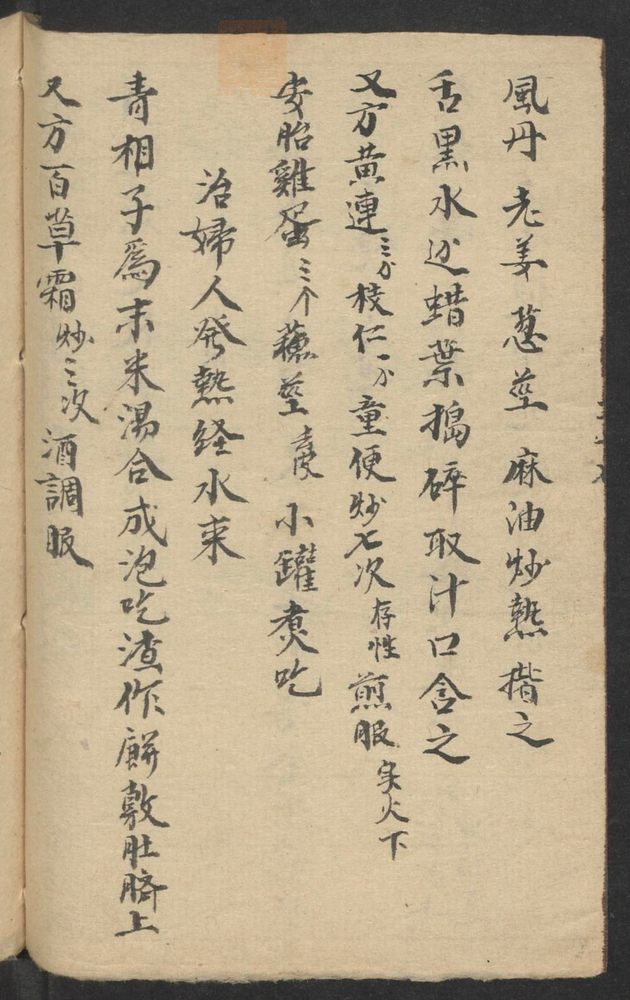 風丹 老姜 葱莖 麻油炒熱揩之
舌黑水边蜡葉搗碎取汁口含之
又方黄連三分枝仁一分童便炒七次存性煎服实火下
安胎雞蛋三个蔴莖 小罐煮吃
治婦人発熱経水来
青相子爲末米湯合成泡吃渣作餅敷肚臍上
又方百草霜炒三次酒調服